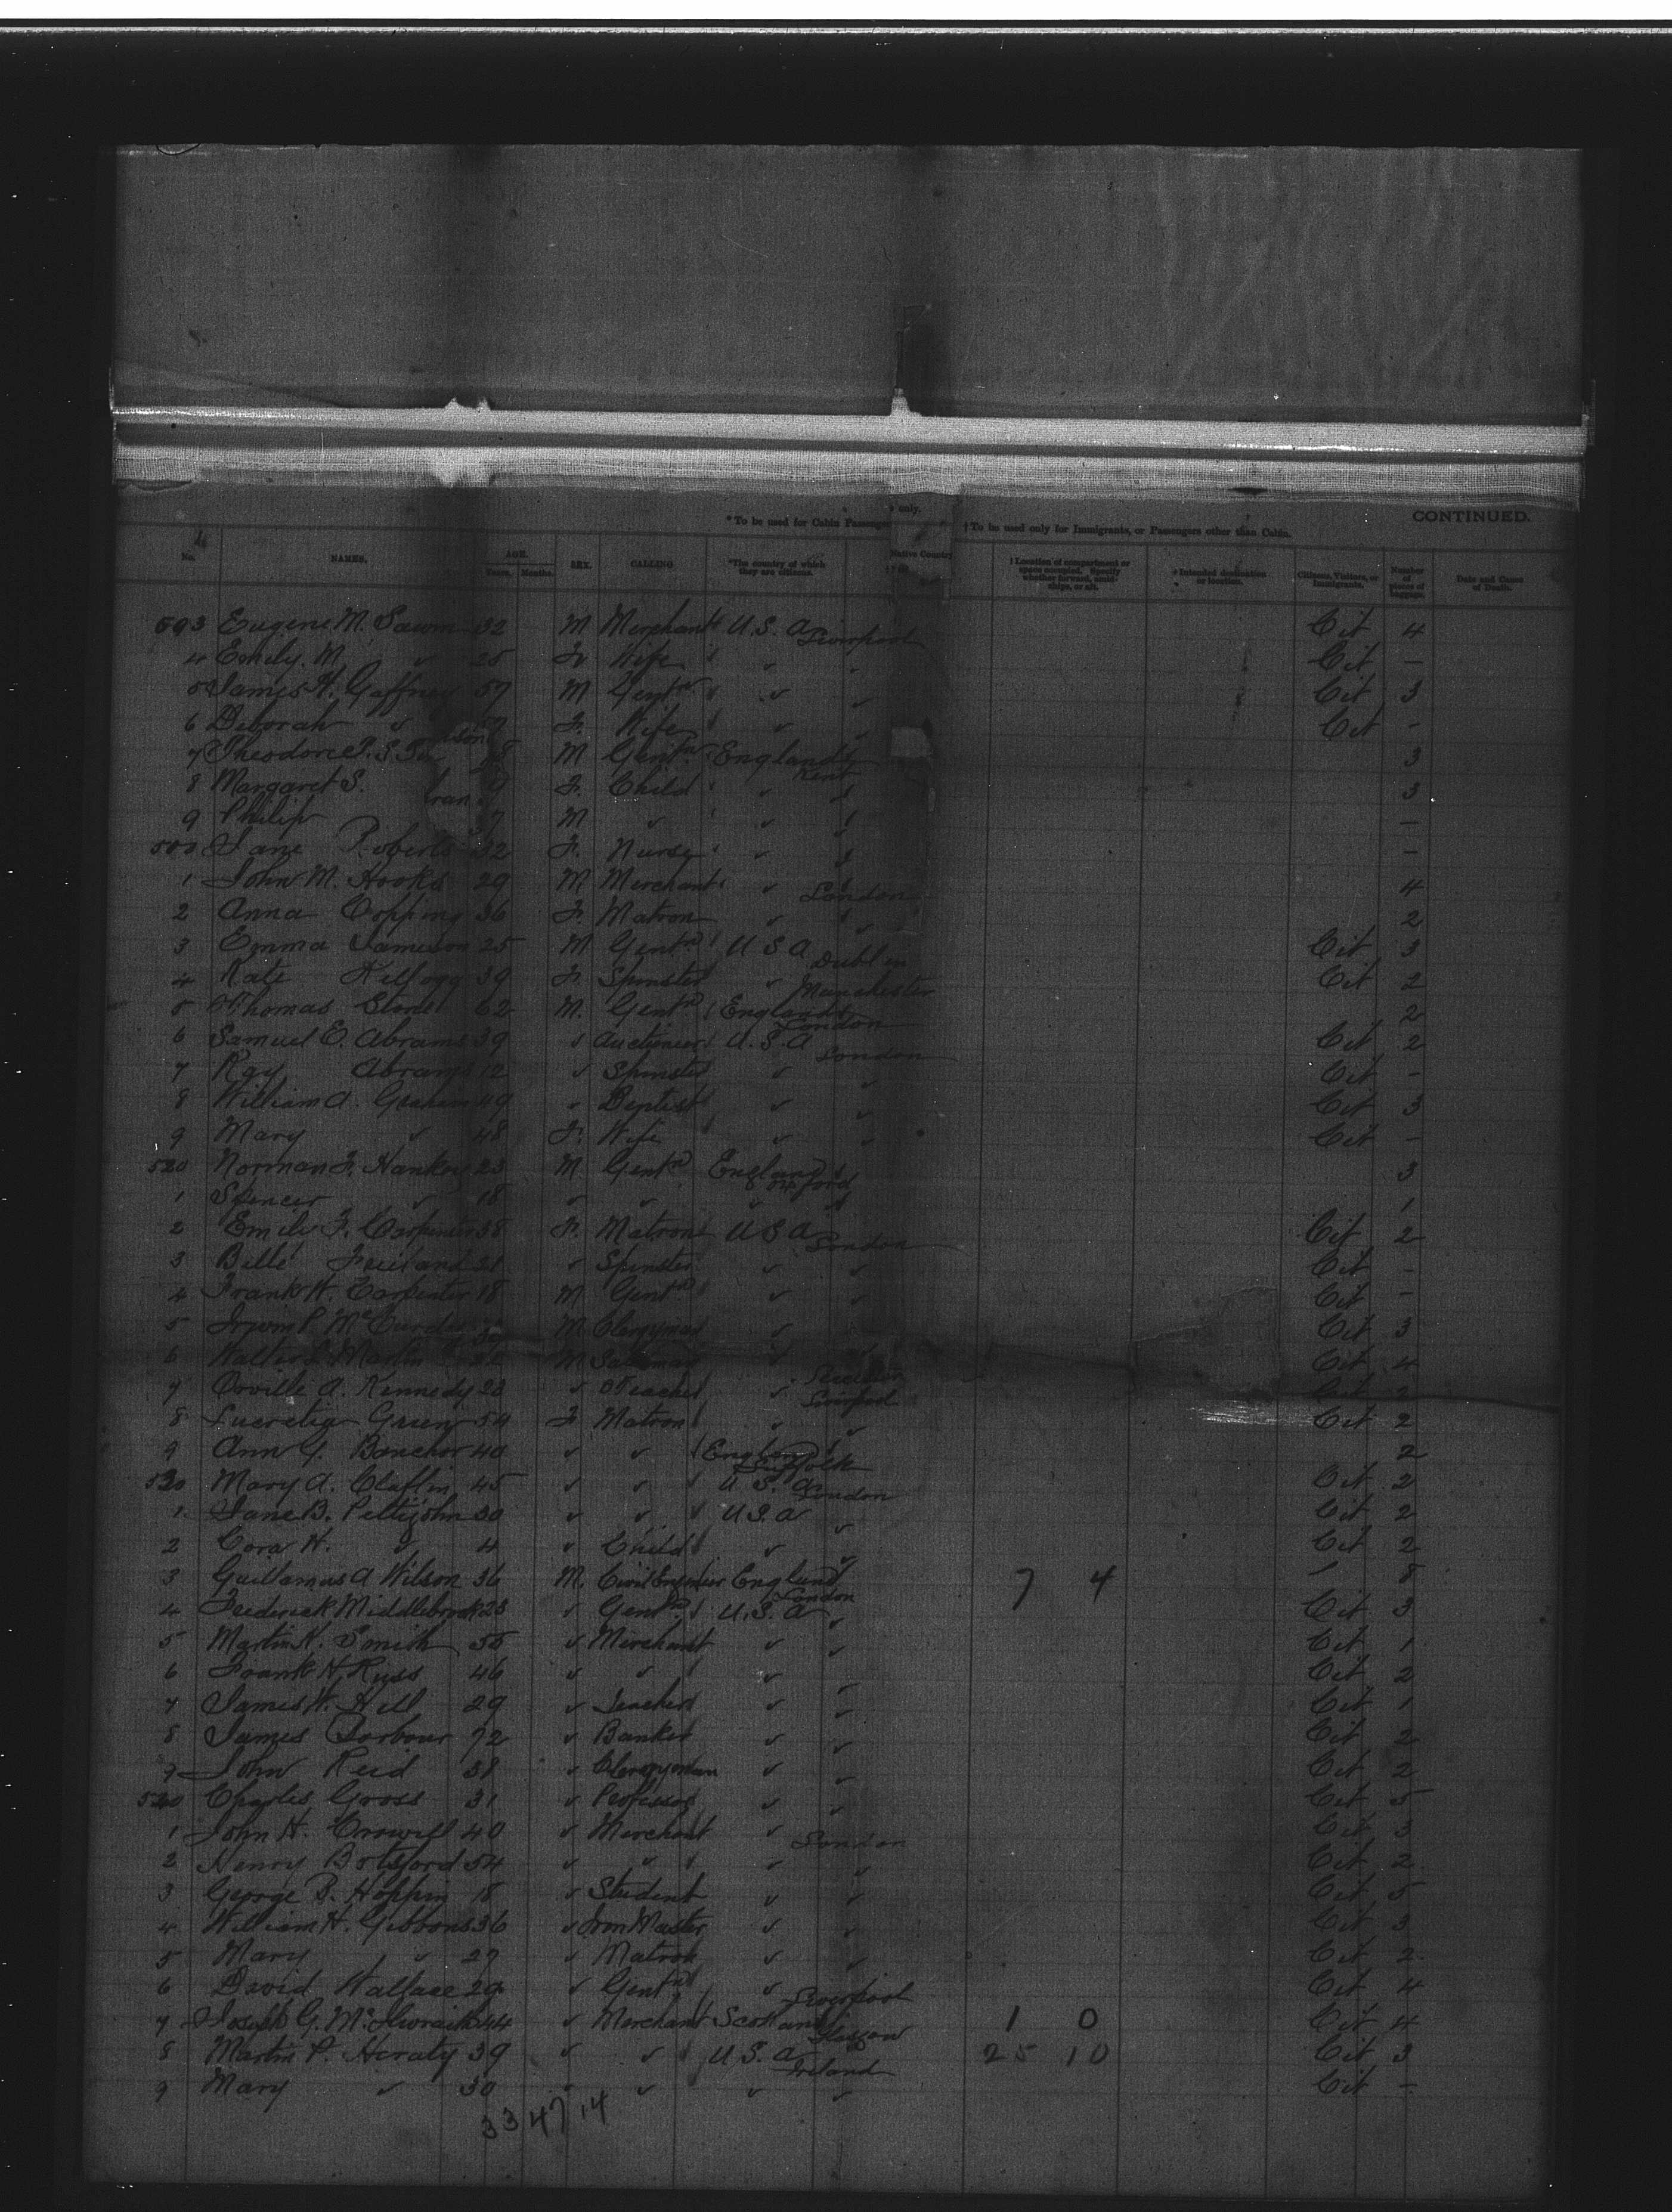 * To be used for Cabin Passenge only. † To be used only for Immigrants, or Passengers other than Cabin. CONTINUED.
No. NAMES. AGE. Years. Months. SEX. CALLING *The country of which they are citizens. Native Country † Location of compartment or space occupied. Specify whether forward, amidships, or aft. * Intended destination or location. Citizens, Visitors, or Immigrants. Number of pieces of baggage. Date and Cause of Death.
593 Eugene M. 32 M Merchant U.S.A Liverpool Cit 4
4 Emily M ✓ 25 F Wife ✓ ✓ Cit –
5 James H. Gaffney 57 M Gentn ✓ ✓ Cit 3
6 Deborah ✓ F. Wife ✓ ✓ Cit –
7 Theodore M Gentn England Kent 3
8 Margaret S. F. Child ✓ 3
9 Philip 7 M ✓ ✓ –
Jane Roberts 32 F. Nurse ✓ –
1 John M. Hooks 29 M Merchant ✓ London 4
2 Anna Copping 36 F. Matron ✓ ✓ 2
3 Emma Jameson 25 M Gentn U S A Dublin Cit 3
4 Kate Kellogg 39 F. Spinster ✓ Manchester Cit 2
5 Thomas Stone 62 M. Gentn England London 2
6 Samuel E. Abrams 39 ✓ Auctioneer U.S.A London Cit 2
7 Ray Abrams 12 ✓ Spinster ✓ ✓ Cit –
8 William A. Graham 49 ✓ Deptist ✓ ✓ Cit 3
9 Mary ✓ 48 F. Wife ✓ ✓ Cit –
520 Norman F. Hankey 23 M Gentn England Oxford 3
1 Spencer ✓ 18 ✓ ✓ ✓ 1
2 Emilie F. Carpenter 38 F. Matron U S A London Cit 2
3 Belle 21 ✓ Spinster ✓ ✓ Cit –
4 Frank H. Carpenter 18 M Gentn ✓ ✓ Cit –
5 Irwin P. McCurdy M Clergyman ✓ Cit 3
6 Walter Martin M Salesman ✓ Cit 4
7 Orville A. Kennedy 23 ✓ Teacher ✓ Liverpool Cit 2
8 Lucretia Green 54 F. Matron ✓ ✓ Cit 2
9 Ann G. Bancher 40 ✓ ✓ England Suffolk 2
530 Mary A. Claflin 45 ✓ ✓ U.S.A London Cit 2
1 Jane B. Pettijohn 30 ✓ ✓ U.S.A ✓ Cit 2
2 Cora H. ✓ 4 ✓ Child ✓ ✓ Cit 2
3 Guillamas A Wilson 36 M. Civil Engineer England London 7 4 1 8
4 Frederick Middlebrook 23 ✓ Gentn U.S.A ✓ Cit 3
5 Martin K. Smith 55 ✓ Merchant ✓ ✓ Cit 1
6 Frank H. Russ 46 ✓ ✓ ✓ ✓ Cit 2
7 James W. Hill 29 ✓ Teacher ✓ ✓ Cit 1
8 James Barbour 72 ✓ Banker ✓ ✓ Cit 2
9 John Reid 38 ✓ Clergyman ✓ ✓ Cit 2
Charles Gross 31 ✓ Professor ✓ ✓ Cit 5
1 John H. Crowell 40 ✓ Merchant ✓ London Cit 3
2 Henry Botsford 54 ✓ ✓ ✓ ✓ Cit 2
3 George B. Hoppin 18 ✓ Student ✓ ✓ Cit 5
4 William H. Gibbons 36 ✓ Iron Master ✓ ✓ Cit 3
5 Mary ✓ 27 ✓ Matron ✓ ✓ Cit 2
6 David Wallace 29 ✓ Gentn ✓ Liverpool Cit 4
7 Joseph G. McIlwraith 44 ✓ Merchant Scotland Glasgow 1 0 Cit 4
8 Martin P. Heraty 39 ✓ ✓ U.S.A Ireland 25 10 Cit 3
9 Mary ✓ 30 ✓ ✓ ✓ Cit –
33 47 14